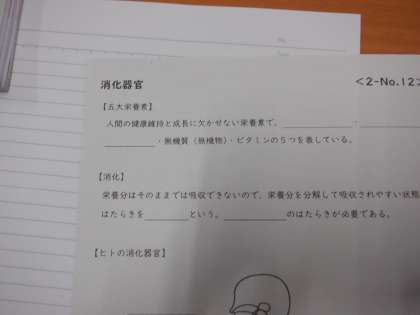 消化器官
<2-No.12>
【五大栄養素】
人間の健康維持と成長に欠かせない栄養素で、
・無機質（無機物）・ビタミンの５つを表している。
【消化】
栄養分はそのままでは吸収できないので、栄養分を分解して吸収されやすい状態
はたらきを という。 のはたらきが必要である。
【ヒトの消化器官】